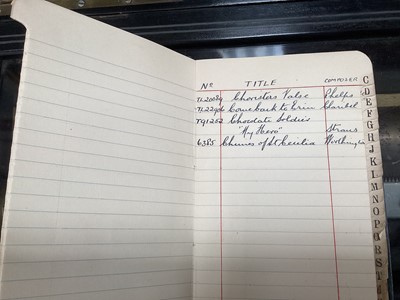 No TITLE COMPOSER
TL20089 Choristers Valse Phelps
TL22906 Come back to Erin Claribel
T91252 Chocolate Soldier
"My Hero" Straus
6385 Chimes of St Cecilia Worthington
C
D
E
F
G
H
J
K
L
M
N
O
P
Q
R
S
T